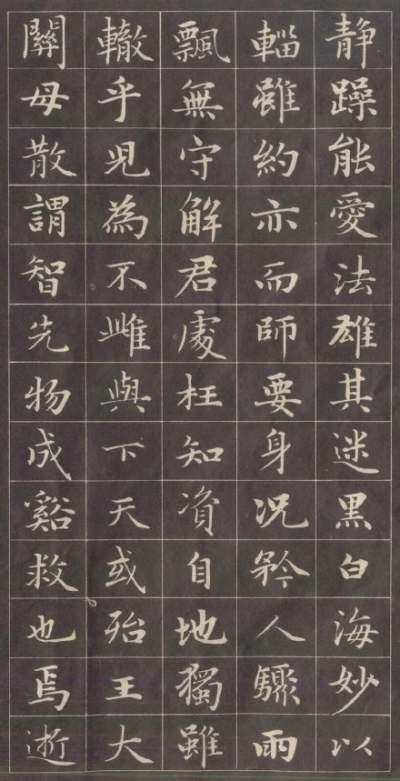 静躁能愛法雄其迷黑白海妙以
輜雖約亦而師要身况矜人驟雨
飄無守解君處枉知資自地獨雖
轍乎児為不雌與下天或殆王大
關母散謂智先物成谿救也焉逝